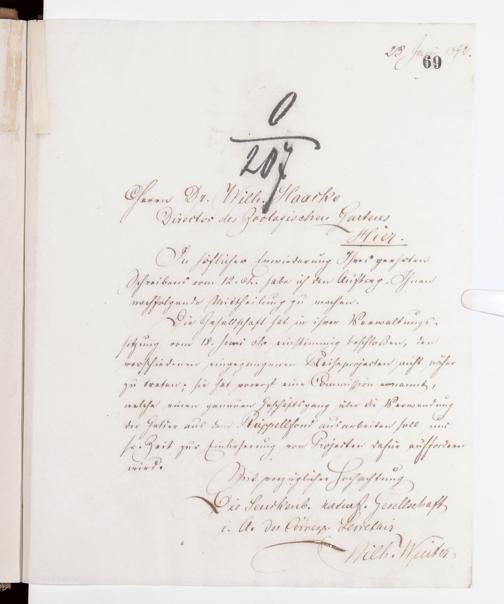 23 Juni 1892.
69
0
207
Herrn Dr. Wilh. Haacke
Director des Zoologischen Gartens
Hier.
In höflicher Erwiederung Ihres geehrten
Schreibens vom 12. ds. habe ich den Auftrag, Ihnen
nachfolgende Mittheilung zu machen.
Die Gesellschaft hat in ihrer Verwaltungs-
sitzung vom 18. Juni ds. einstimmig beschloßen, den
verschiedenen eingegangenen Reiseprojecten nicht näher
zu treten; sie hat vorerst eine Commission ernannt,
welche einen genauen Geschäftsgang über die Verwendung
der Gelder aus dem Rüppellfond ausarbeiten soll und
sr. Zeit zur Einlieferung von Projecten dafür auffordern
wird.
Mit vorzüglicher Hochachtung
Die Senckenb. naturf. Gesellschaft
i. A. der Corresp. Secretair
Wilh. Winter